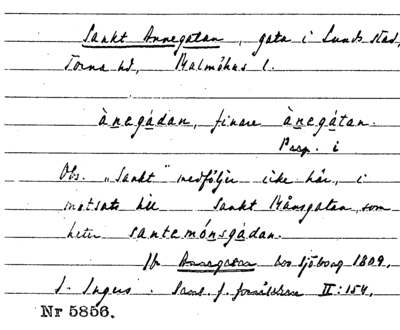 Sankt Annegatan, gata i Lunds stad,
Torna hd, Malmöhus l.
ànegádan, finare ànegátan.
Prep. i
Obs. „Sankt" medföljer icke här, i
motsats till Sankt Månsgatan, som
heter santemónsgádan.
Jfr Annegatan hos Sjöborg 1809.
J. Ingers. Saml. f. II: 154.
Nr 5856.